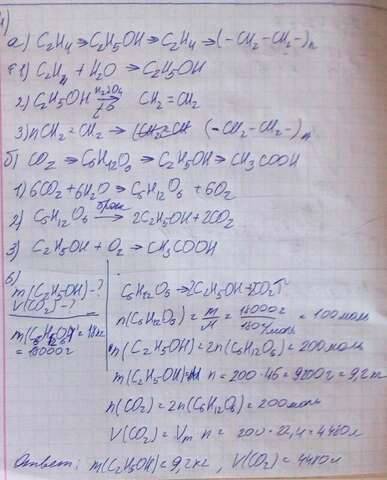 а) C2H4 → C2H5OH → C2H4 → (-CH2-CH2-)n
1) C2H4 + H2O → C2H5OH
2) C2H5OH H2SO4 t° → CH2=CH2
3) nCH2=CH2 → (-CH2-CH2-)n
б) CO2 → C6H12O6 → C2H5OH → CH3COOH
1) 6CO2 + 6H2O → C6H12O6 + 6O2
2) C6H12O6 брож → 2C2H5OH + 2CO2
3) C2H5OH + O2 → CH3COOH
m(C2H5OH) - ?
V(CO2) - ?
m(C6H12O6) = 18кг
= 18000г
C6H12O6 → 2C2H5OH + 2CO2↑
n(C6H12O6) = m/M = 18000г/180г/моль = 100моль
n(C2H5OH) = 2n(C6H12O6) = 200моль
m(C2H5OH) = M n = 200·46 = 9200г = 9,2кг
n(CO2) = 2n(C6H12O6) = 200моль
V(CO2) = Vm n = 200·22,4 = 4480л
Ответ: m(C2H5OH) = 9,2кг, V(CO2) = 4480л